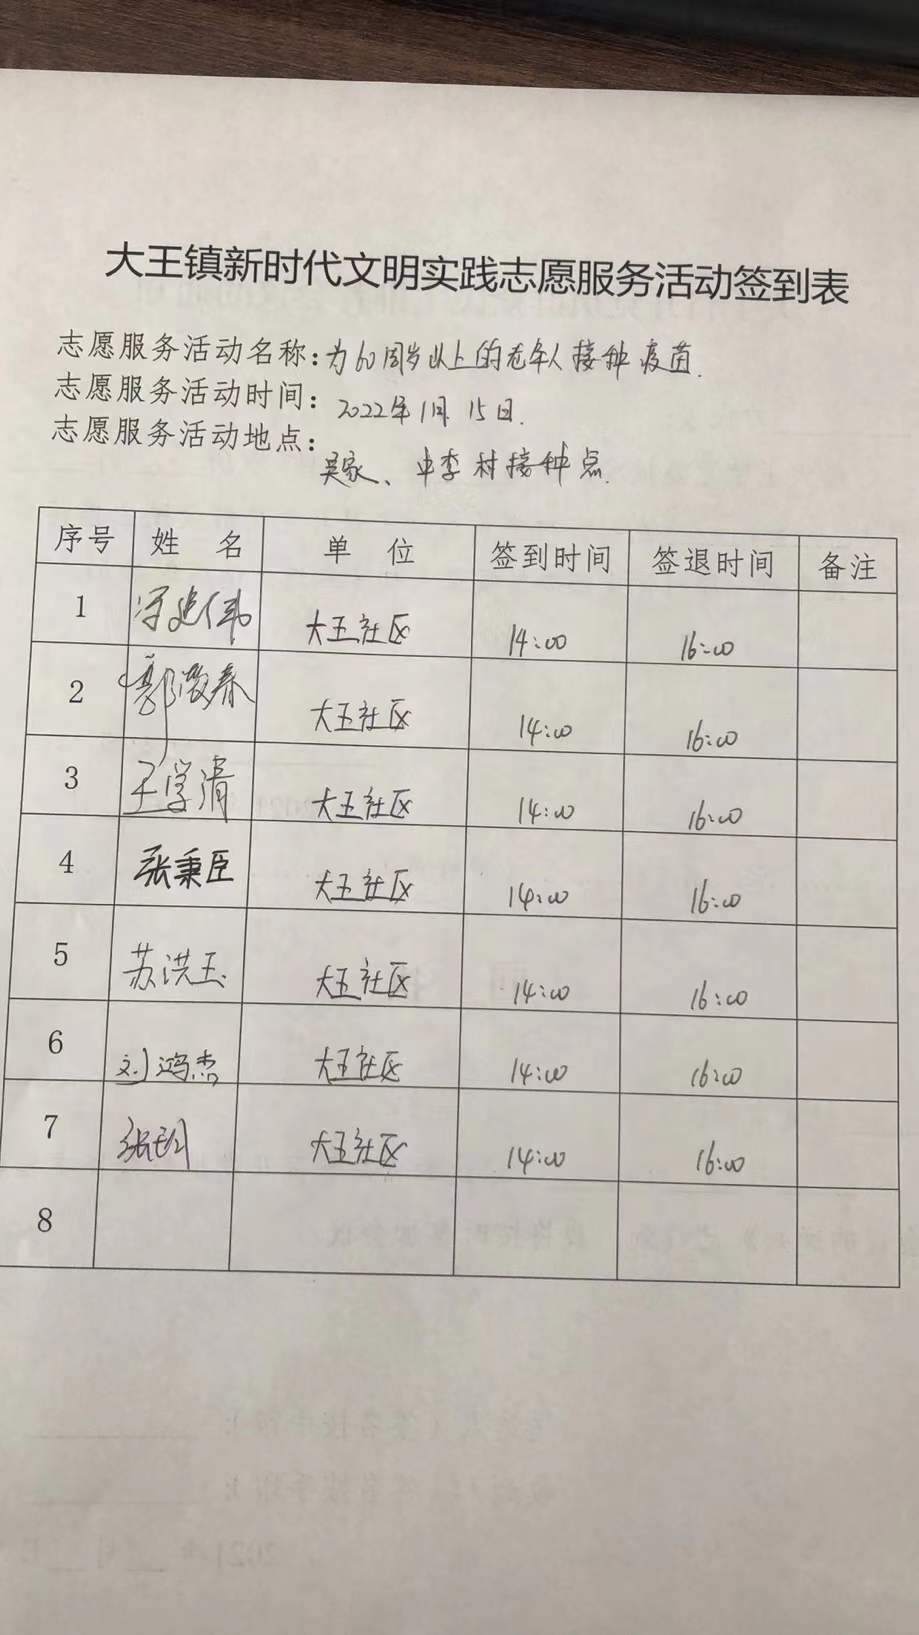 大王镇新时代文明实践志愿服务活动签到表
志愿服务活动名称：为60周岁以上的老年人接种疫苗.
志愿服务活动时间：2022年1月15日.
志愿服务活动地点：吴家、中李村接种点.
序号 姓 名 单 位 签到时间 签退时间 备注
1 冯建伟 大王社区 14:00 16:00
2 郭微春 大王社区 14:00 16:00
3 王学清 大王社区 14:00 16:00
4 张秉臣 大王社区 14:00 16:00
5 苏洪玉 大王社区 14:00 16:00
6 刘鸿杰 大王社区 14:00 16:00
7 大王社区 14:00 16:00
8